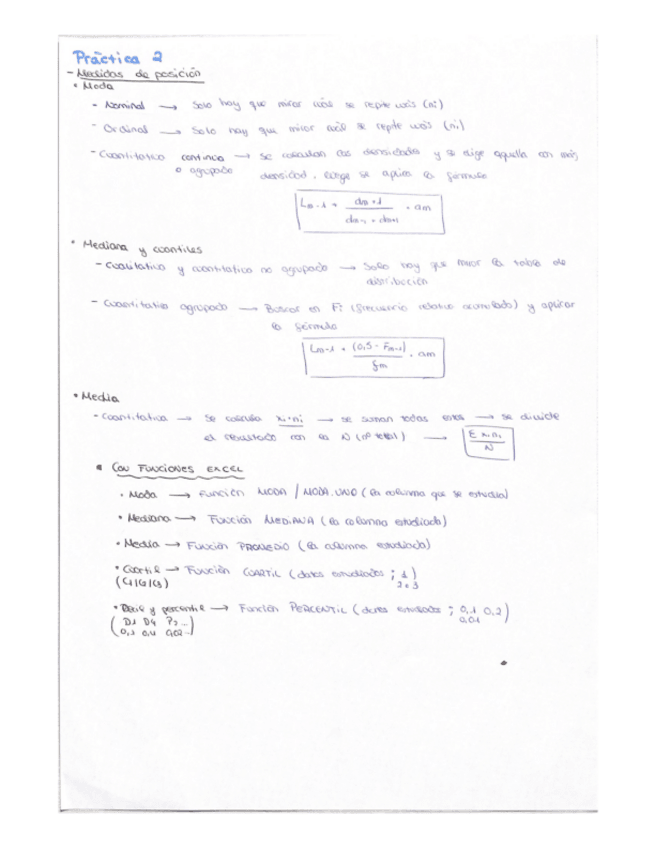 Práctica 2
- Medidas de posición
• Moda
- Nominal → Solo hay que mirar cuál se repite más (ni)
- Ordinal → Solo hay que mirar cuál se repite más (ni)
- Cuantitativa continua → Se calculan las densidades y se elige aquella con más
o agrupada densidad, luego se aplica la fórmula
Lm-1 + dm+1 / dm-1 + dm+1 · am
• Mediana y cuantiles
- Cualitativa y cuantitativa no agrupada → Solo hay que mirar la tabla de
distribución
- Cuantitativa agrupada → Buscar en Fi (frecuencia relativa acumulada) y aplicar
la fórmula
Lm-1 + (0,5 - Fm-1) / fm · am
• Media
- Cuantitativa → Se calcula xi·ni → se suman todas estas → se divide
el resultado con la N (nº total) → Σ xi·ni / N
• CON FUNCIONES EXCEL
• Moda → Función MODA / MODA.UNO (la columna que se estudia)
• Mediana → Función MEDIANA (la columna estudiada)
• Media → Función PROMEDIO (la columna estudiada)
• Cuartil → Función CUARTIL (datos estudiados ; 1)
(C1/C2/C3) 2 o 3
• Decil y percentil → Función PERCENTIL (datos estudiados ; 0,1 0,2)
(D1 D4 P2 ... 0,01
0,1 0,4 0,02 ...)